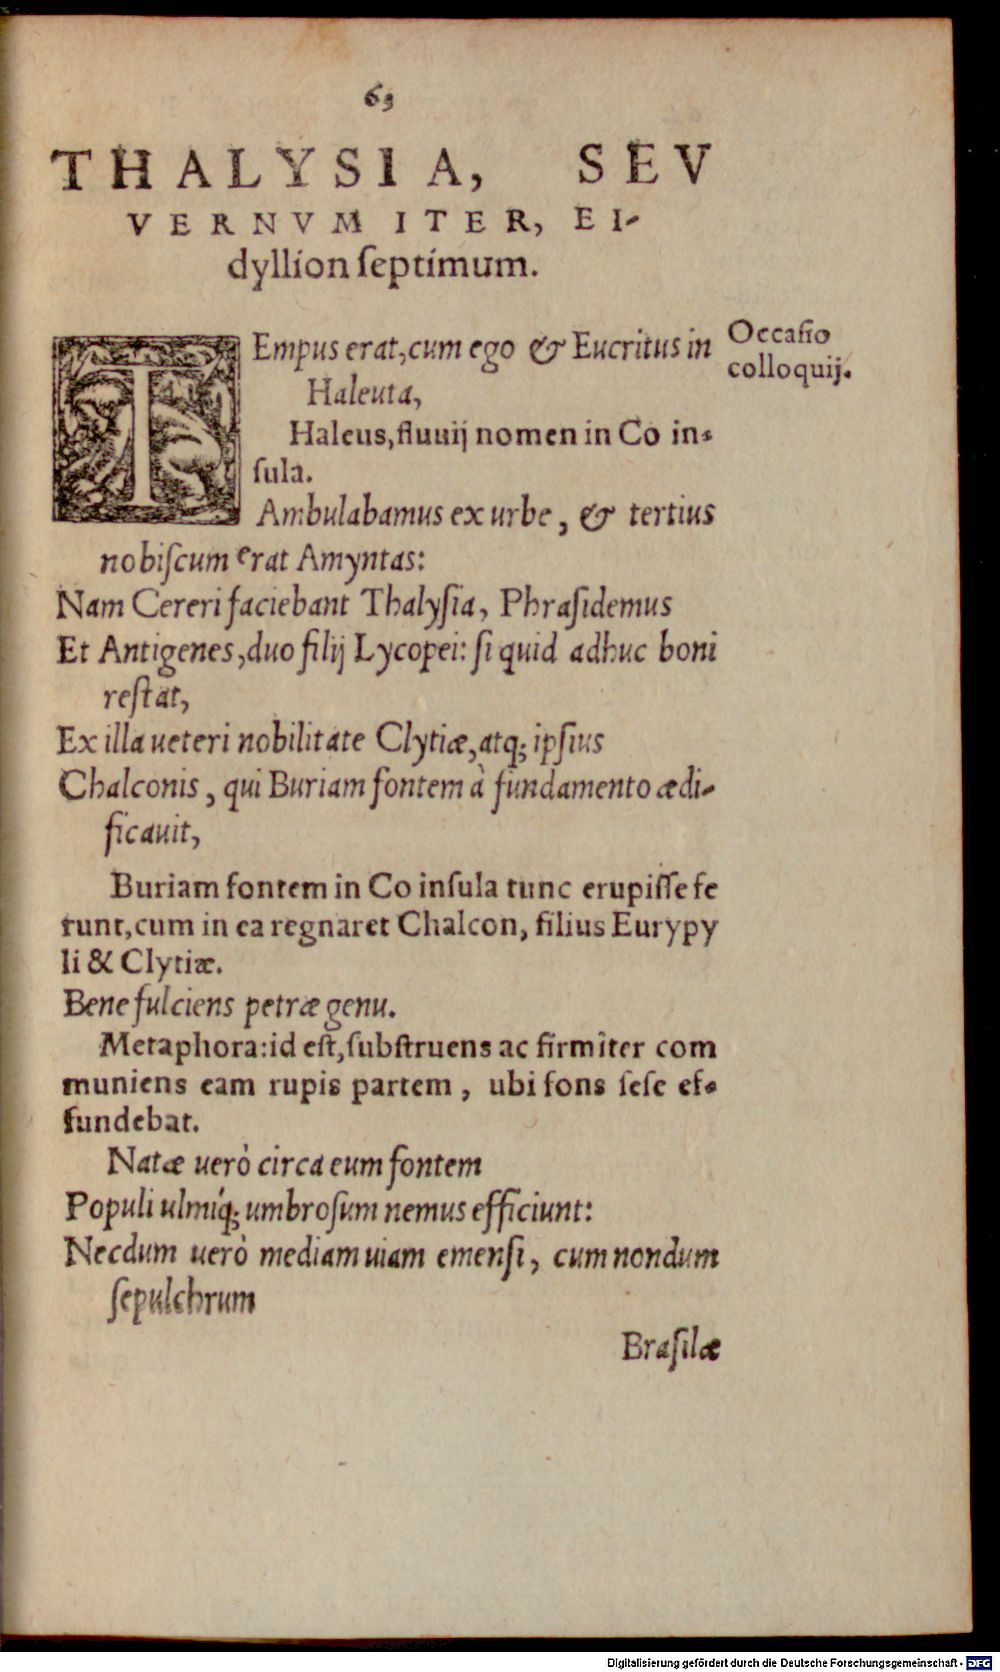 63
THALYSIA, SEV
VERNVM ITER, EI-
dyllion ſeptimum.
TEmpus erat, cum ego & Eucritus in
Haleuta,
Occaſio
colloquij.
Haleus, fluuij nomen in Co in-
ſula.
Ambulabamus ex urbe, & tertius
nobiſcum erat Amyntas:
Nam Cereri faciebant Thalyſia, Phraſidemus
Et Antigenes, duo filij Lycopei: ſi quid adhuc boni
reſtat,
Ex illa ueteri nobilitate Clytiæ, atq; ipſius
Chalconis, qui Buriam fontem à fundamento ædi-
ficauit,
Buriam fontem in Co inſula tunc erupiſſe fe
runt, cum in ea regnaret Chalcon, filius Eurypy
li & Clytiæ.
Bene fulciens petræ genu.
Metaphora: id eſt, ſubſtruens ac firmiter com
muniens eam rupis partem, ubi fons ſeſe ef-
fundebat.
Natæ uerò circa eum fontem
Populi ulmíq; umbroſum nemus efficiunt:
Necdum uerò mediam uiam emenſi, cum nondum
ſepulchrum
Braſilæ
Digitalisierung gefördert durch die Deutsche Forschungsgemeinschaft - DFG